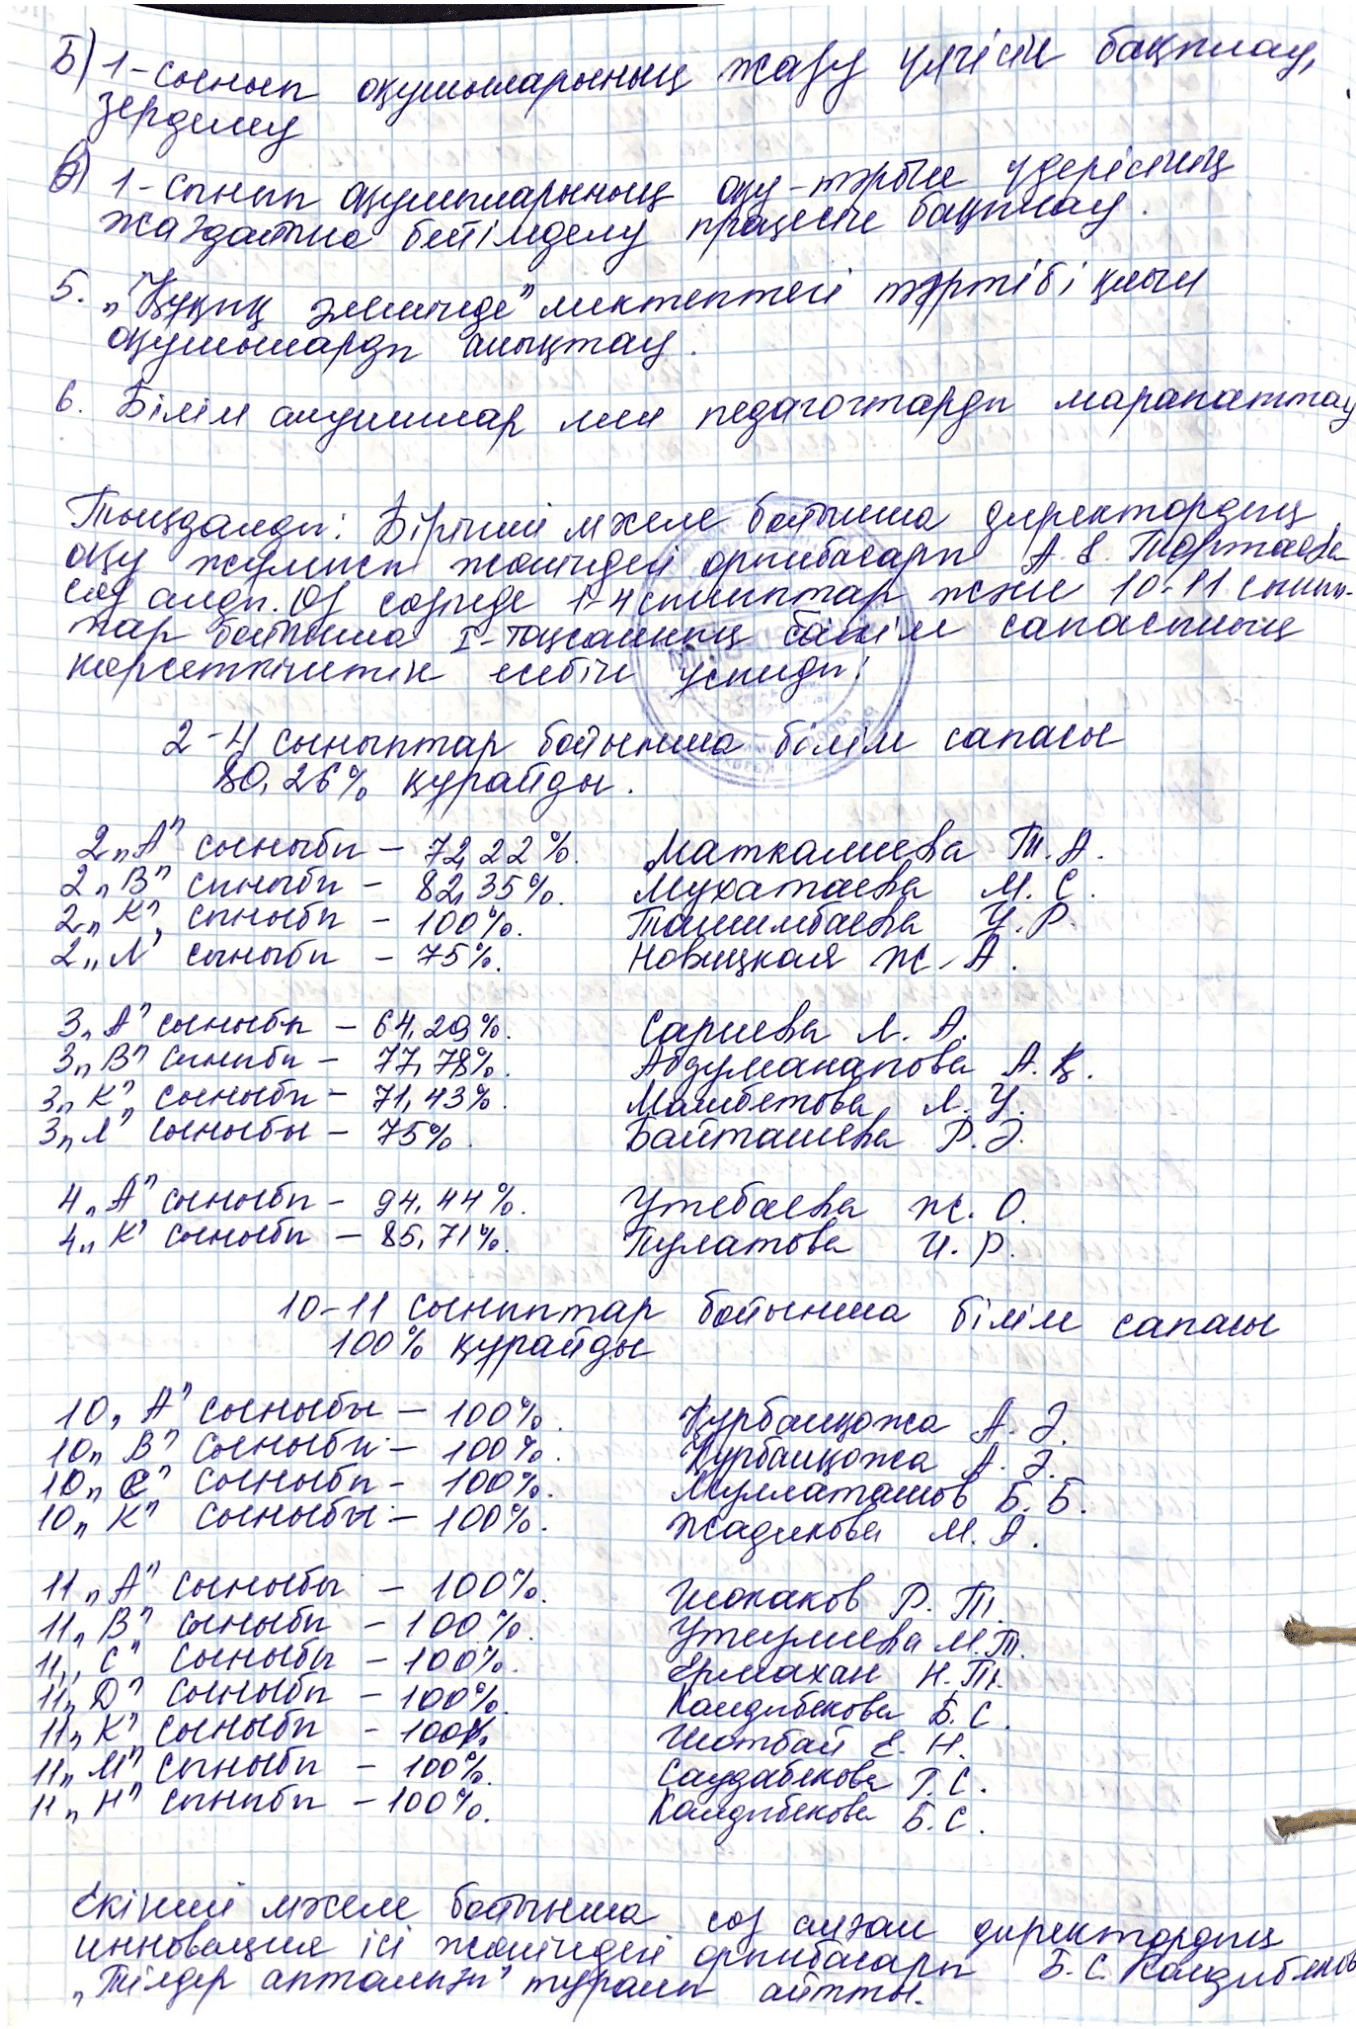 Б) 1-сынып оқушыларының жазу үлгісін бақылау,
зерделеу
В) 1-сынып оқушыларының оқу-тәрбие үдерісінің
жағдайына бейімделу процесін бақылау.
5. „Құқық әлемінде" мектептегі тәртібі қиын
оқушыларды анықтау.
6. Білім алушылар мен педагогтарды марапаттау
Тыңдалды: Бірінші мәселе бойынша директордың
оқу жұмысы жөніндегі орынбасары А. Тортаева
сөз алды. Өз сөзінде 1-4 сыныптар және 10-11 сынып-
тар бойынша I-тоқсанның білім сапасының
көрсеткіштік есебін ұсынды:
2-4 сыныптар бойынша білім сапасы
80,26% құрайды.
2„А" сыныбы - 72,22%. Маткалиева Т.А.
2„В" сыныбы - 82,35%. Мухатаева М.С.
2„К" сыныбы - 100%. Ташимбаева У.Р.
2„Л" сыныбы - 75%. Новицкая Ж.А.
3„А" сыныбы - 64,29%. Сариева Л.А.
3„В" сыныбы - 77,78%. Абдуманапова А.Қ.
3„К" сыныбы - 71,43%. Мамбетова Л.У.
3„Л" сыныбы - 75%. Байташева Р.Э.
4„А" сыныбы - 94,44%. Утебаева Ж.О.
4„К" сыныбы - 85,71%. Пулатова И.Р.
10-11 сыныптар бойынша білім сапасы
100% құрайды
10„А" сыныбы - 100%. Құрбанқожа А.Э.
10„В" сыныбы - 100%. Құрбанқожа А.Э.
10„С" сыныбы - 100%. Муллаташов Б.Б.
10„К" сыныбы - 100%. Жадикова М.А.
11„А" сыныбы - 100%. Шопаков Р.Т.
11„В" сыныбы - 100%. Утеулиева М.Т.
11„С" сыныбы - 100%. Ермахан Н.Т.
11„Д" сыныбы - 100%. Калдибекова Б.С.
11„К" сыныбы - 100%. Шотбай Е.Н.
11„М" сыныбы - 100%. Саудабекова Г.С.
11„Н" сыныбы - 100%. Калдибекова Б.С.
Екінші мәселе бойынша сөз алған директордың
инновация ісі жөніндегі орынбасары Б.С. Калдибекова
„Тілдер апталығы" туралы айтты.